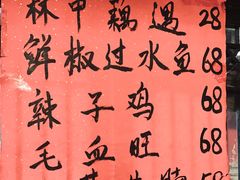 林中藕遇 28
鲜椒过水鱼 68
辣子鸡 68
毛血旺 68